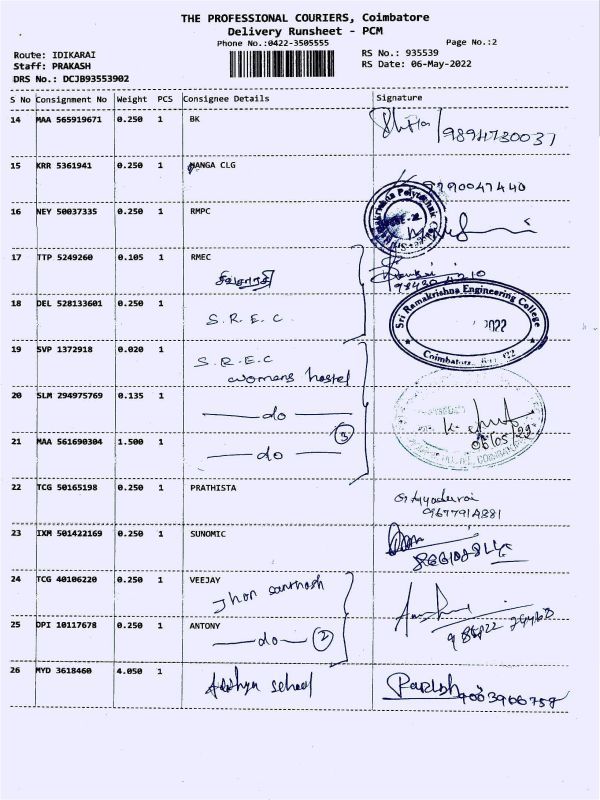 THE PROFESSIONAL COURIERS, Coimbatore
Delivery Runsheet - PCM
Phone No.:0422-3505555 Page No.:2
Route: IDIKARAI RS No.: 935539
Staff: PRAKASH RS Date: 06-May-2022
DRS No.: DCJB93553902
S No Consignment No Weight PCS Consignee Details Signature
14 MAA 565919671 0.250 1 BK 9894730037
15 KRR 5361941 0.250 1 NANGA CLG 9790047440
16 NEY 50037335 0.250 1 RMPC
17 TTP 5249260 0.105 1 RMEC
18 DEL 528133601 0.250 1
S.R.E.C. Sri Ramakrishna Engineering College
Coimbatore
19 SVP 1372918 0.020 1 S.R.E.C
womens hostel
20 SLM 294975769 0.135 1 do
06/05/22
21 MAA 561690304 1.500 1 do 3
22 TCG 50165198 0.250 1 PRATHISTA
9677914881
23 IXM 501422169 0.250 1 SUNOMIC
24 TCG 40106220 0.250 1 VEEJAY
Jhon santhosh
25 DPI 10117678 0.250 1 ANTONY
do 2
26 MYD 3618460 4.050 1 9003966758